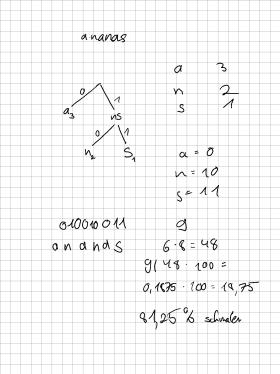 ananas
a 3
n 2
s 1
0 1
a3 ns
0 1
n2 S1
a = 0
n = 10
s = 11
010010011 9
ananas 6·8 = 48
9/48 · 100 =
0,1875 · 100 = 18,75
81,25 % schmaler